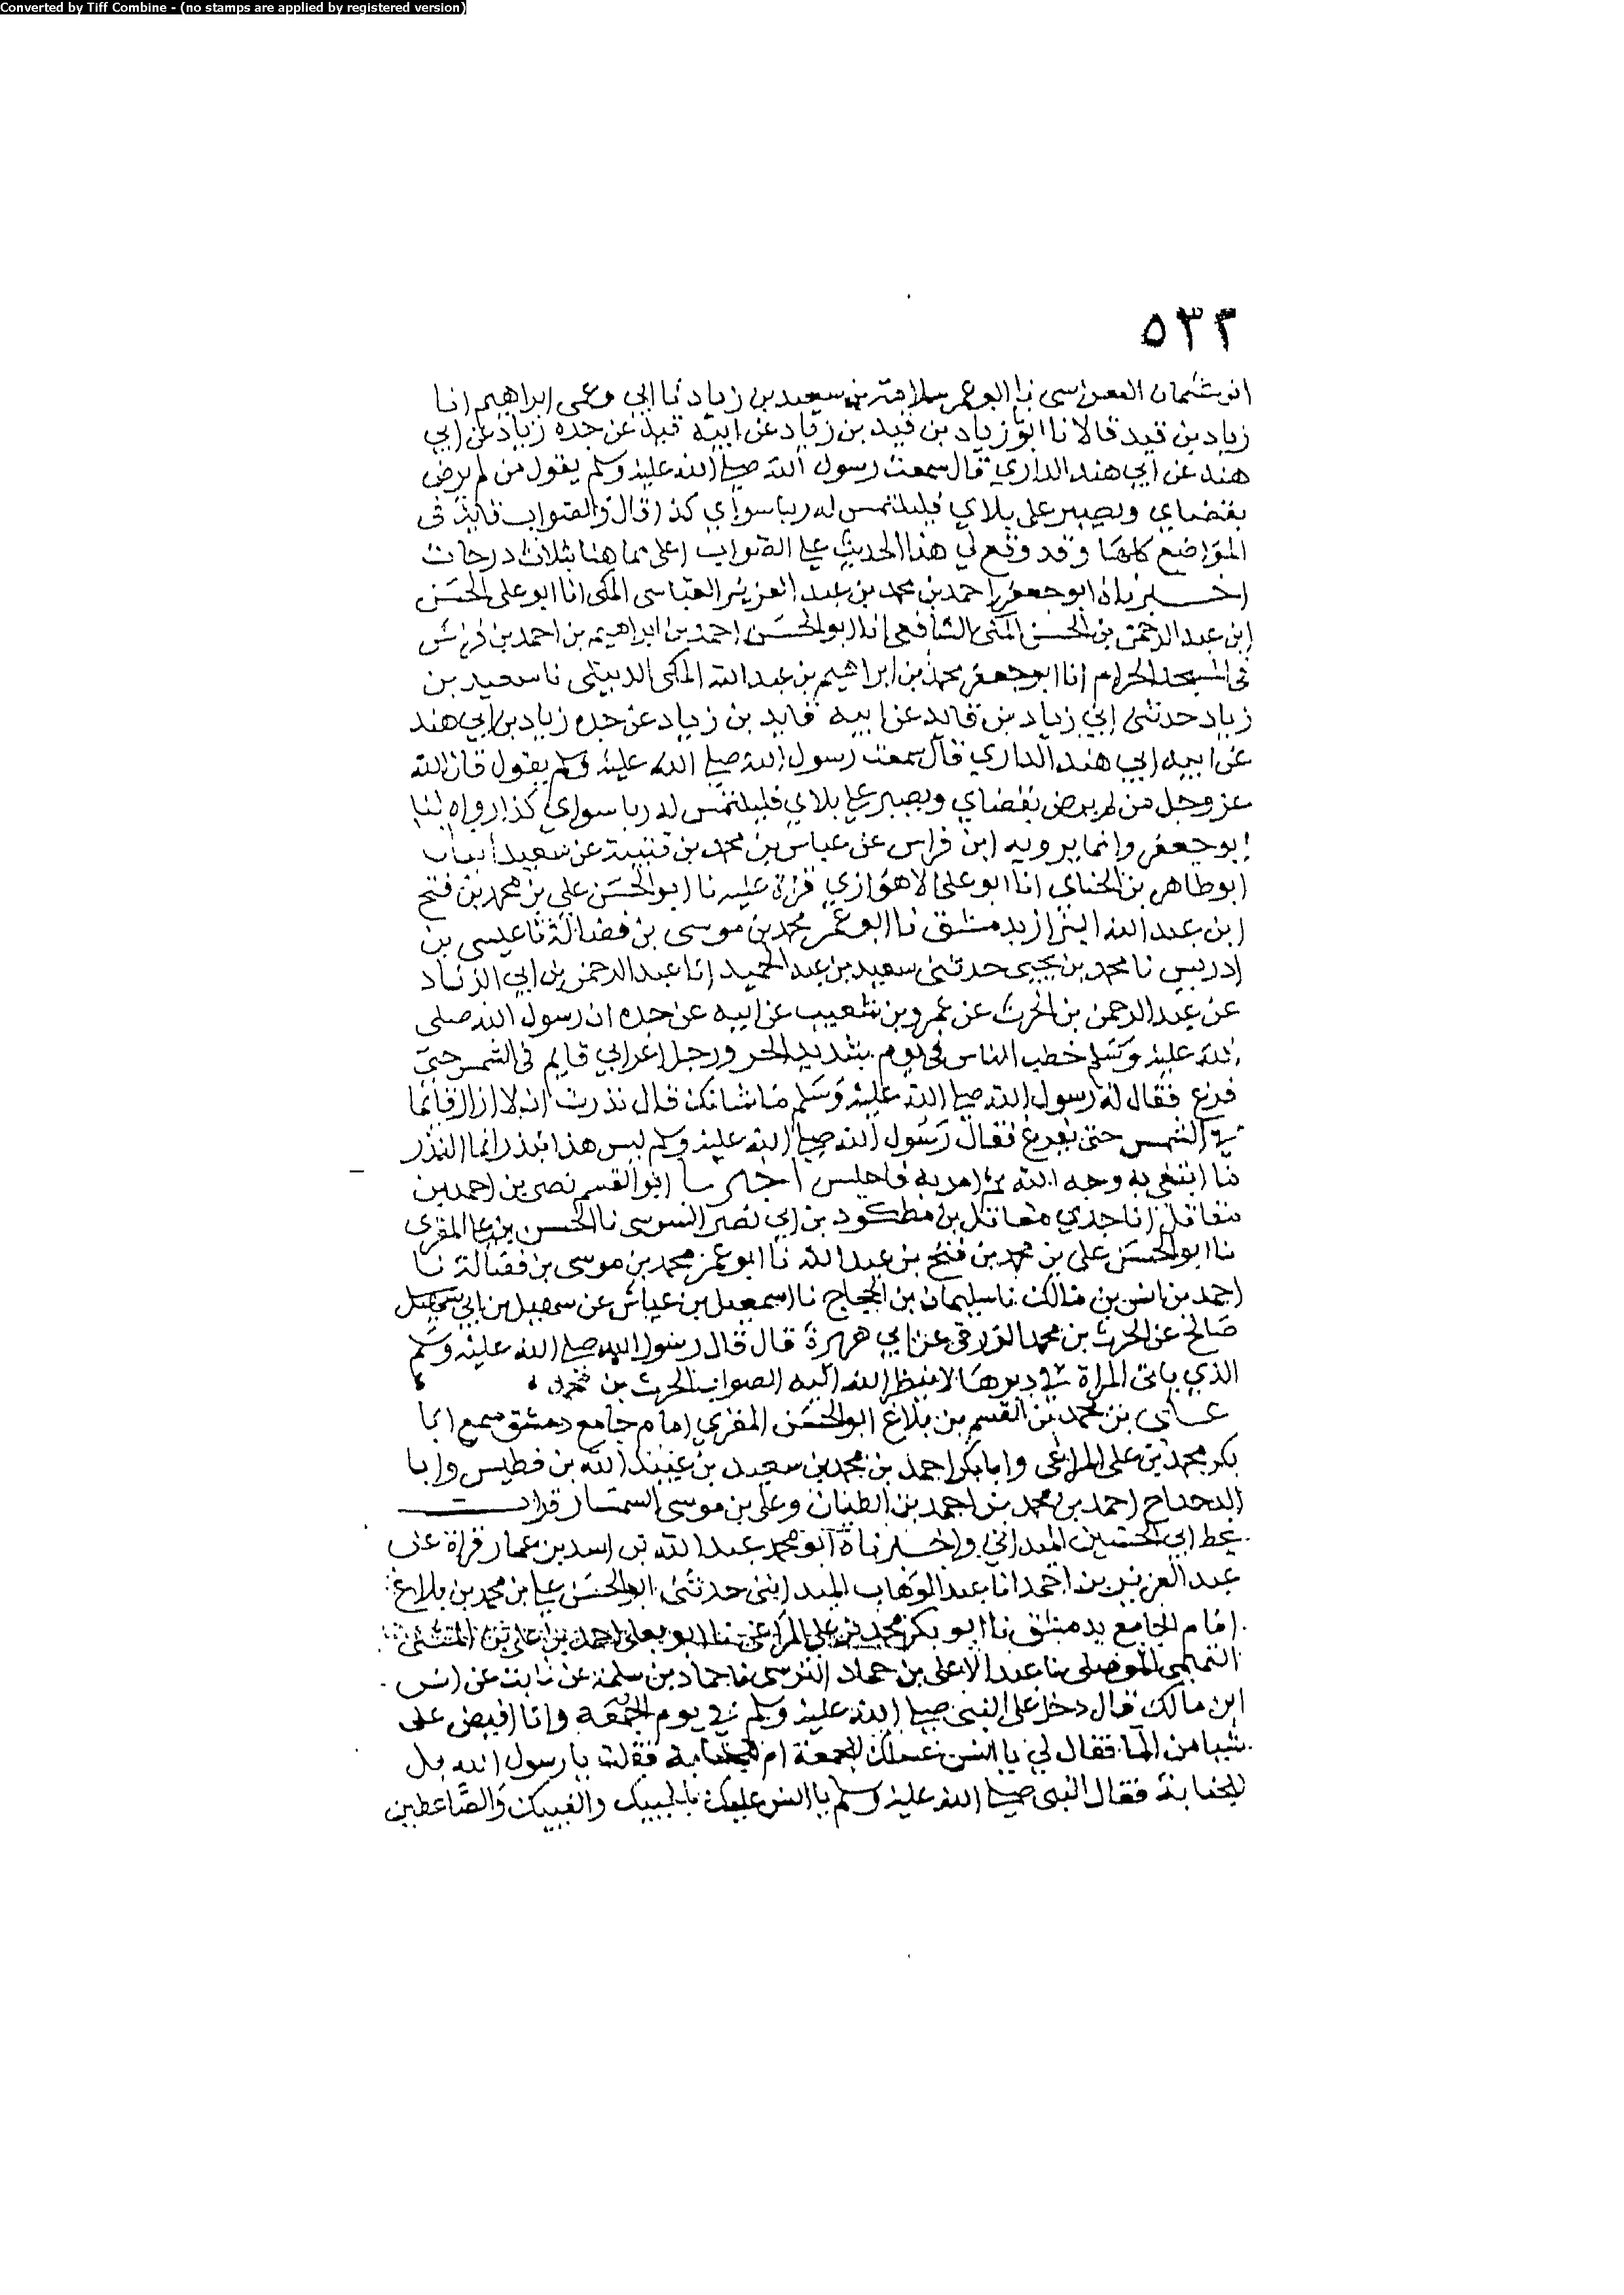 Converted by Tiff Combine - (no stamps are applied by registered version)
٥٣٣
سلامة بن سعيد بن زياد نا ابي وعمى ابراهيم انا
زياد بن قيد قالا نا ابو زياد بن قيد بن زياد عن ابيه قيد عن جده زياد عن ابي
هند عن ابي هند الداري قال سمعت رسول الله صلى الله عليه وسلم يقول من لم يرض
بقضاي ويصبر على بلاي فليلتمس له ربا سواي كذا قال والصواب فايد فى
المواضع كلها وقد وقع لي هذا الحديث على الصواب اعلى مما هنا بثلاث درجات
اخبرناه ابو جعفر احمد بن محمد بن عبد العزيز العباسى المكى انا ابو على الحسن
ابن عبد الرحمن بن الحسن المكى الشافعى انا ابو الحسن احمد بن ابراهيم بن احمد بن فراس
فى المسجد الحرام انا ابو جعفر محمد بن ابراهيم بن عبد الله المكى الديبلى نا سعيد بن
زياد حدثنى ابي زياد بن فايد عن ابيه فايد بن زياد عن جده زياد بن ابي هند
عن ابيه ابي هند الداري قال سمعت رسول الله صلى الله عليه وسلم يقول قال الله
عز وجل من لم يرض بقضاي ويصبر على بلاي فليلتمس له ربا سواي كذا رواه لنا
ابو جعفر وانما يرويه ابن فراس عن عباس بن محمد بن قتيبة عن سعيد انبانا
ابو طاهر بن الحناي انا ابو على الاهوازي قراة عليه نا ابو الحسن على بن محمد بن فتح
ابن عبد الله البزاز بدمشق نا ابو عمر محمد بن موسى بن فضالة نا عيسى بن
ادريس نا محمد بن يحيى حدثنى سعيد بن عبد الحميد انا عبد الرحمن بن ابي الزناد
عن عبد الرحمن بن الحرث عن عمرو بن شعيب عن ابيه عن جده ان رسول الله صلى
الله عليه وسلم خطب الناس فى يوم شديد الحر ورجل اعرابي قايم فى الشمس حتى
فرغ فقال له رسول الله صلى الله عليه وسلم ما شانك قال نذرت ان لا ازال قائما
في الشمس حتى تفرغ فقال رسول الله صلى الله عليه وسلم ليس هذا بنذر انما النذر
ما ابتغي به وجه الله ثم امر به فاجلس اخبرنا ابو القسم نصر بن احمد بن
مقاتل انا جدي مقاتل بن مطكود بن ابي نصر السوسى نا الحسن بن على المقرى
نا ابو الحسن على بن محمد بن فتح بن عبد الله نا ابو عمر محمد بن موسى بن فضالة نا
احمد بن انس بن مالك نا سليمان بن الحجاج نا اسمعيل بن عياش عن سهيل بن ابي سهيل
صالح عن الحرث بن محمد الزرقى عن ابي هريرة قال قال رسول الله صلى الله عليه وسلم
الذي ياتى المراة في دبرها لا ينظر الله اليه الصواب الحرث بن مخلد
على بن محمد بن القسم بن بلاغ ابو الحسن المقري امام جامع دمشق سمع ابا
بكر محمد بن على المراغى وابا بكر احمد بن محمد بن سعيد بن عبيد الله بن فطيس وابا
الدحداح احمد بن محمد بن احمد بن الطيان وعلى بن موسى السمسار قرات
بخط ابي الحسين الميداني واخبرناه ابو محمد عبد الله بن اسد بن عمار قراة عن
عبد العزيز بن احمد انا عبد الوهاب الميدانى حدثنى ابو الحسن على بن محمد بن بلاغ
امام الجامع بدمشق نا ابو بكر محمد بن على المراغى نا ابو يعلى احمد بن على بن المثنى
التميمى الموصلى نا عبد الاعلى بن حماد النرسى نا حماد بن سلمة عن ثابت عن انس
ابن مالك قال دخل على النبى صلى الله عليه وسلم في يوم الجمعة وانا افيض على
شيا من الماء فقال لي يا انس غسلك للجمعة ام للجنابة فقلت يا رسول الله بل
للجنابة فقال النبى صلى الله عليه وسلم يا انس عليك